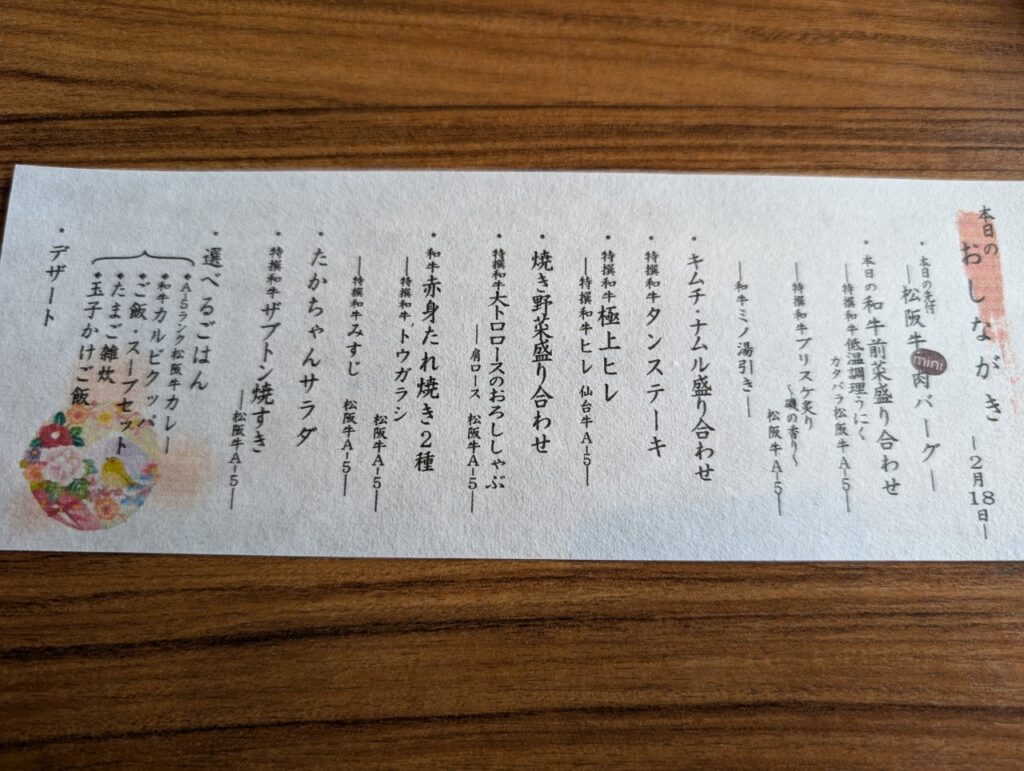 本日の
おしながき ―2月18日―
・本日の先付
―松阪牛mini肉バーグ―
・本日の和牛前菜盛り合わせ
―特撰和牛低温調理うにく
カタバラ松阪牛A-5―
―特撰和牛ブリスケ炙り
～磯の香り～
松阪牛A-5―
―和牛ミノ湯引き―
・キムチ・ナムル盛り合わせ
・特撰和牛タンステーキ
・特撰和牛極上ヒレ
―特撰和牛ヒレ 仙台牛A-5―
・焼き野菜盛り合わせ
・特撰和牛大トロロースのおろししゃぶ
―肩ロース 松阪牛A-5―
・和牛赤身たれ焼き2種
―特撰和牛トウガラシ
松阪牛A-5―
―特撰和牛みすじ 松阪牛A-5―
・たかちゃんサラダ
・特撰和牛ザブトン焼すき
―松阪牛A-5―
・選べるごはん
◆A-5ランク松阪牛カレー
◆和牛カルビクッパ
◆ご飯・スープセット
◆たまご雑炊
◆玉子かけご飯
・デザート